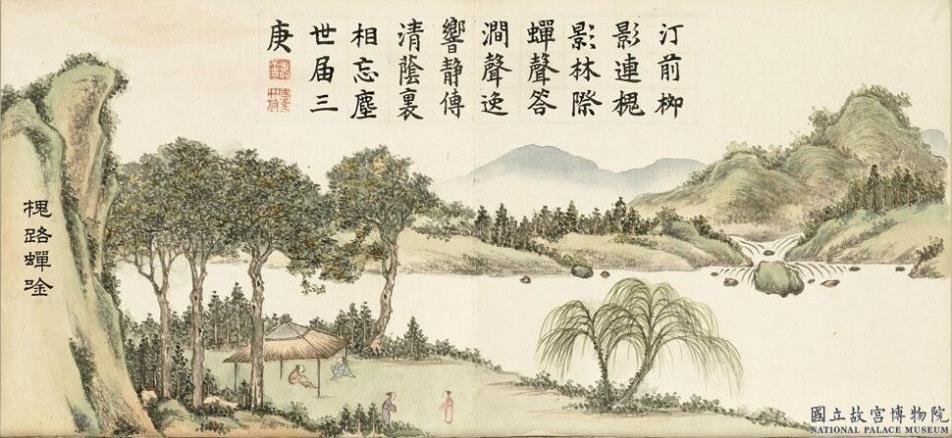 汀前柳
影連槐
影林際
蟬聲答
澗聲逸
響静傳
清蔭裏
相忘塵
世届三
庚
槐路蟬唫
國立故宮博物院
NATIONAL PALACE MUSEUM